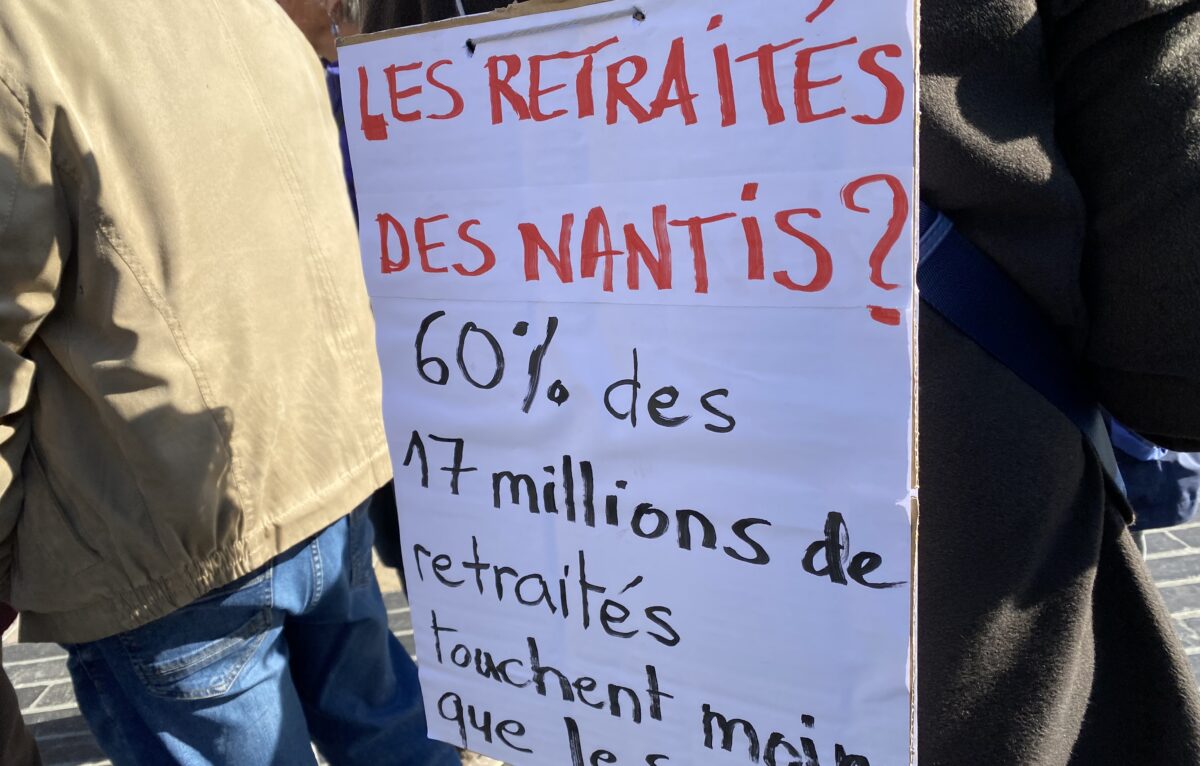 LES RETRAITÉS
DES NANTIS?
60% des
17 millions de
retraités
touchent moin
que les